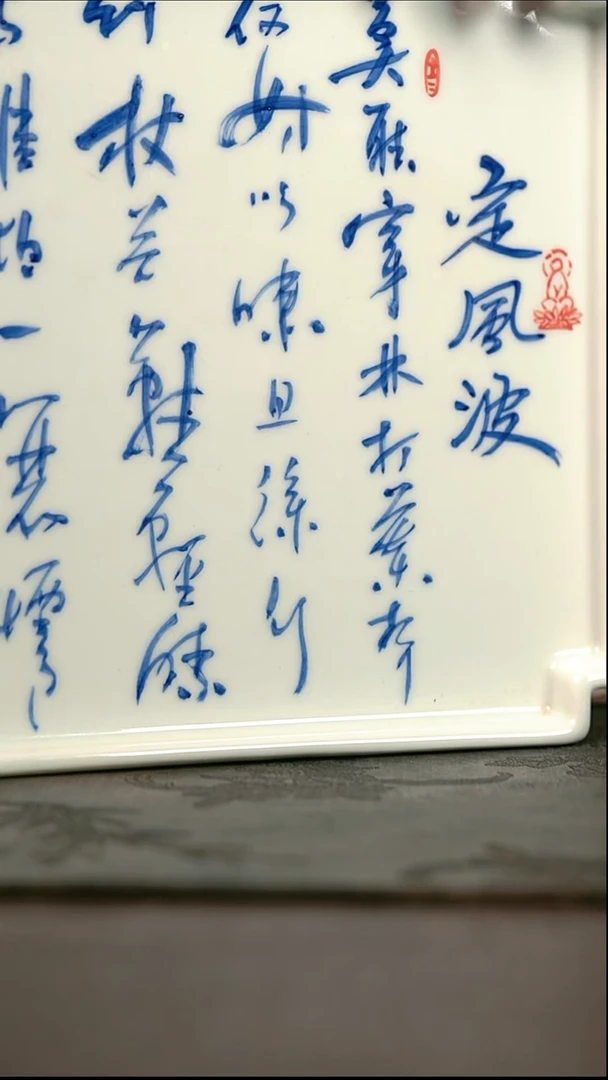 定風波
莫聽穿林打葉声
何妨吟嘯且徐行
竹杖芒鞋輕勝
馬誰怕一蓑煙雨